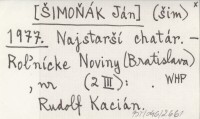 [ŠIMOŇÁK Ján] (šim)
1977. Najstarší chatár. –
Roľnícke Noviny (Bratislava)
, nr (2 III): . WHP
Rudolf Kacián.